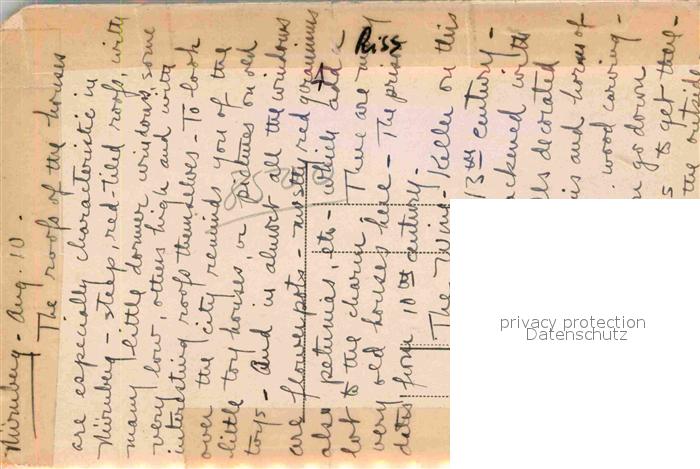 Nürnberg - Aug. 10.
The roofs of the houses
are especially characteristic in
Nürnberg - steep, red-tiled roofs, with
many little dormer windows, some
very low, others high and with
interesting roofs themselves - To look
over the city reminds you of the
little toy houses in pictures on old
toys - And in almost all the windows
are flowerpots - mostly red geraniums
also petunias, etc - which add a
lot to the charm There are many
very old houses here - The prison
dates from 10th century.
The Wine-Keller on this
13th century -
ackened with
ls decorated
is and horns of
wood carving -
n go down
s to get there -
the outside
Riss
privacy protection
Datenschutz